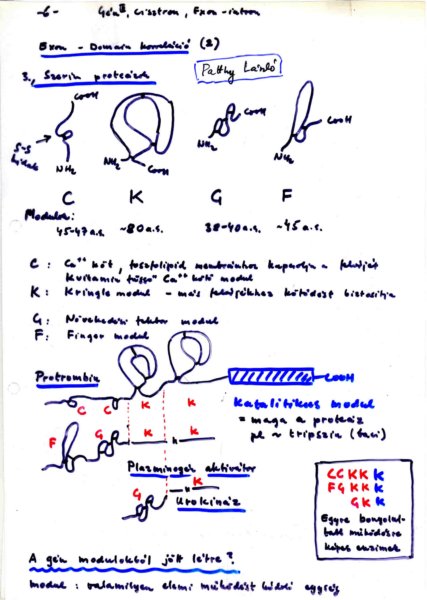 -6- Gén II, cisztron, Exon-intron
Exon - Domain korreláció (2)
3., Szerin proteázok
Patthy László
COOH
S-S hidak
NH2
COOH
NH2
COOH
NH2
COOH
NH2
C K G F
Modulok:
45-47 a.s. ~80 a.s. 38-40 a.s. ~45 a.s.
C: Ca++ köt, foszfolipid membránhoz kapcsolja a fehérjét
K vitamin függő Ca++ kötő modul
K: Kringle modul - más fehérjékhez kötődést biztosítja
G: Növekedési faktor modul
F: Finger modul
Protrombin
COOH
C C K K
Katalitikus modul
= maga a proteáz
pl ~ tripszin (baci)
F G K K
Plazminogén aktivátor
G K
Urokináz
CCKKK
FGKKK
GKK
Egyre bonyolultabb működésre képes enzimek
A gén modulokból jött létre?
modul: valamilyen elemi működést kódoló egység